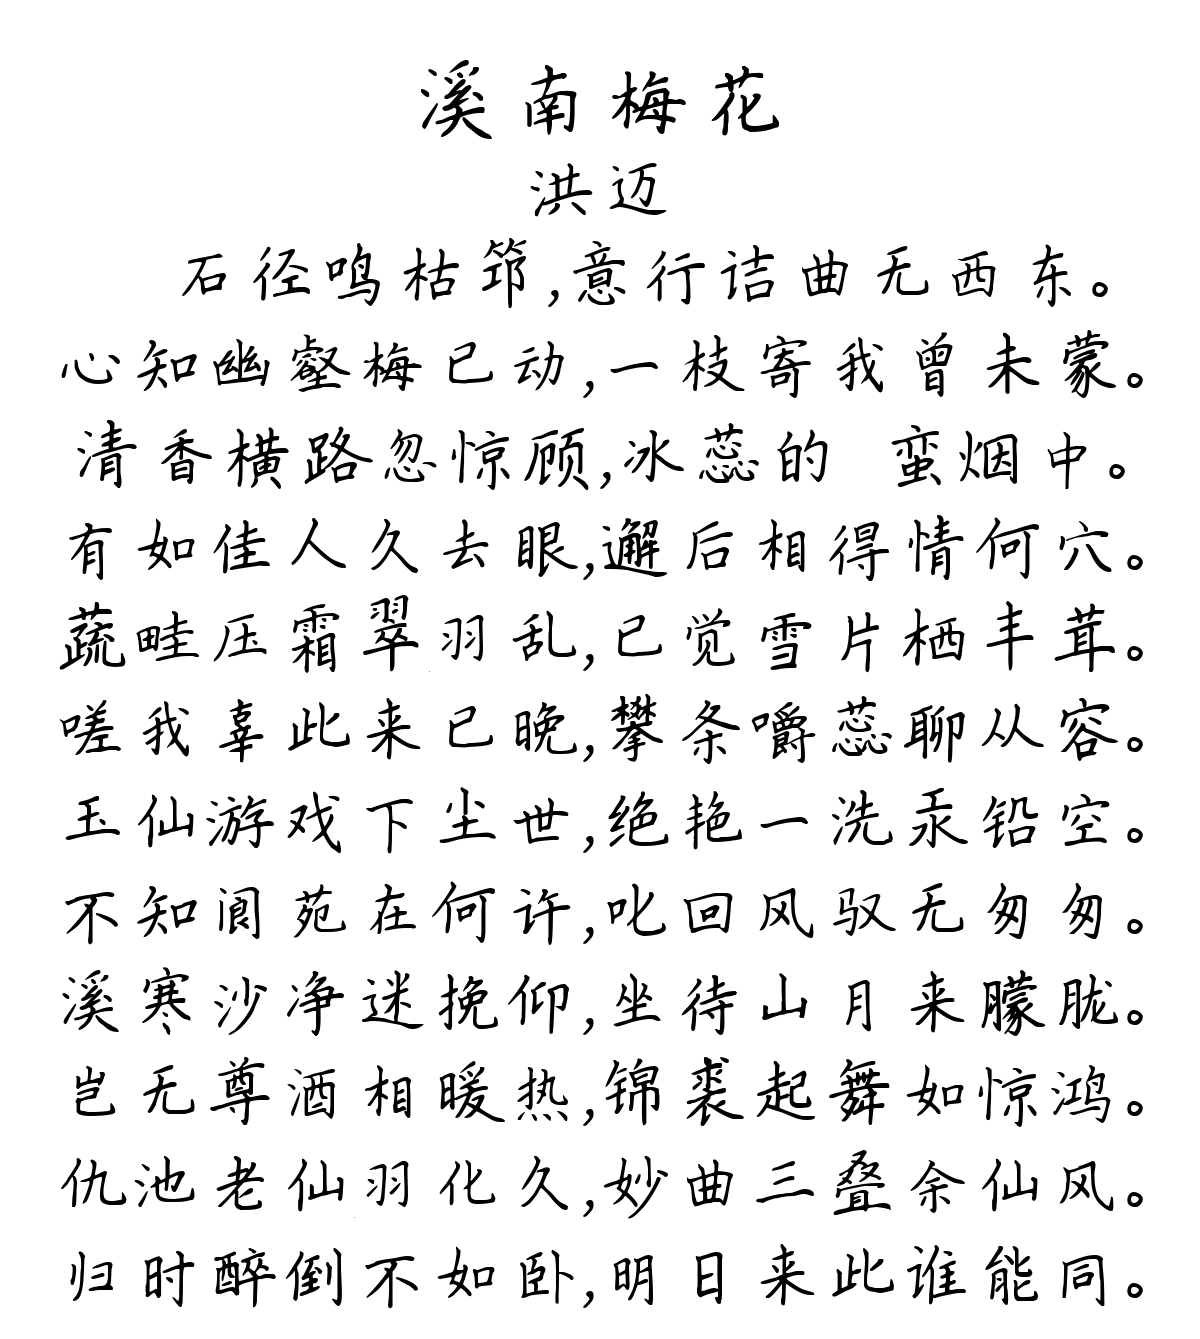 溪南梅花
洪迈
石径鸣枯筇,意行诘曲无西东。
心知幽壑梅已动,一枝寄我曾未蒙。
清香横路忽惊顾,冰蕊的 蛮烟中。
有如佳人久去眼,邂后相得情何穴。
蔬畦压霜翠羽乱,已觉雪片栖丰茸。
嗟我辜此来已晚,攀条嚼蕊聊从容。
玉仙游戏下尘世,绝艳一洗汞铅空。
不知阆苑在何许,叱回风驭无匆匆。
溪寒沙净迷挽仰,坐待山月来朦胧。
岂无尊酒相暖热,锦裘起舞如惊鸿。
仇池老仙羽化久,妙曲三叠余仙风。
归时醉倒不如卧,明日来此谁能同。